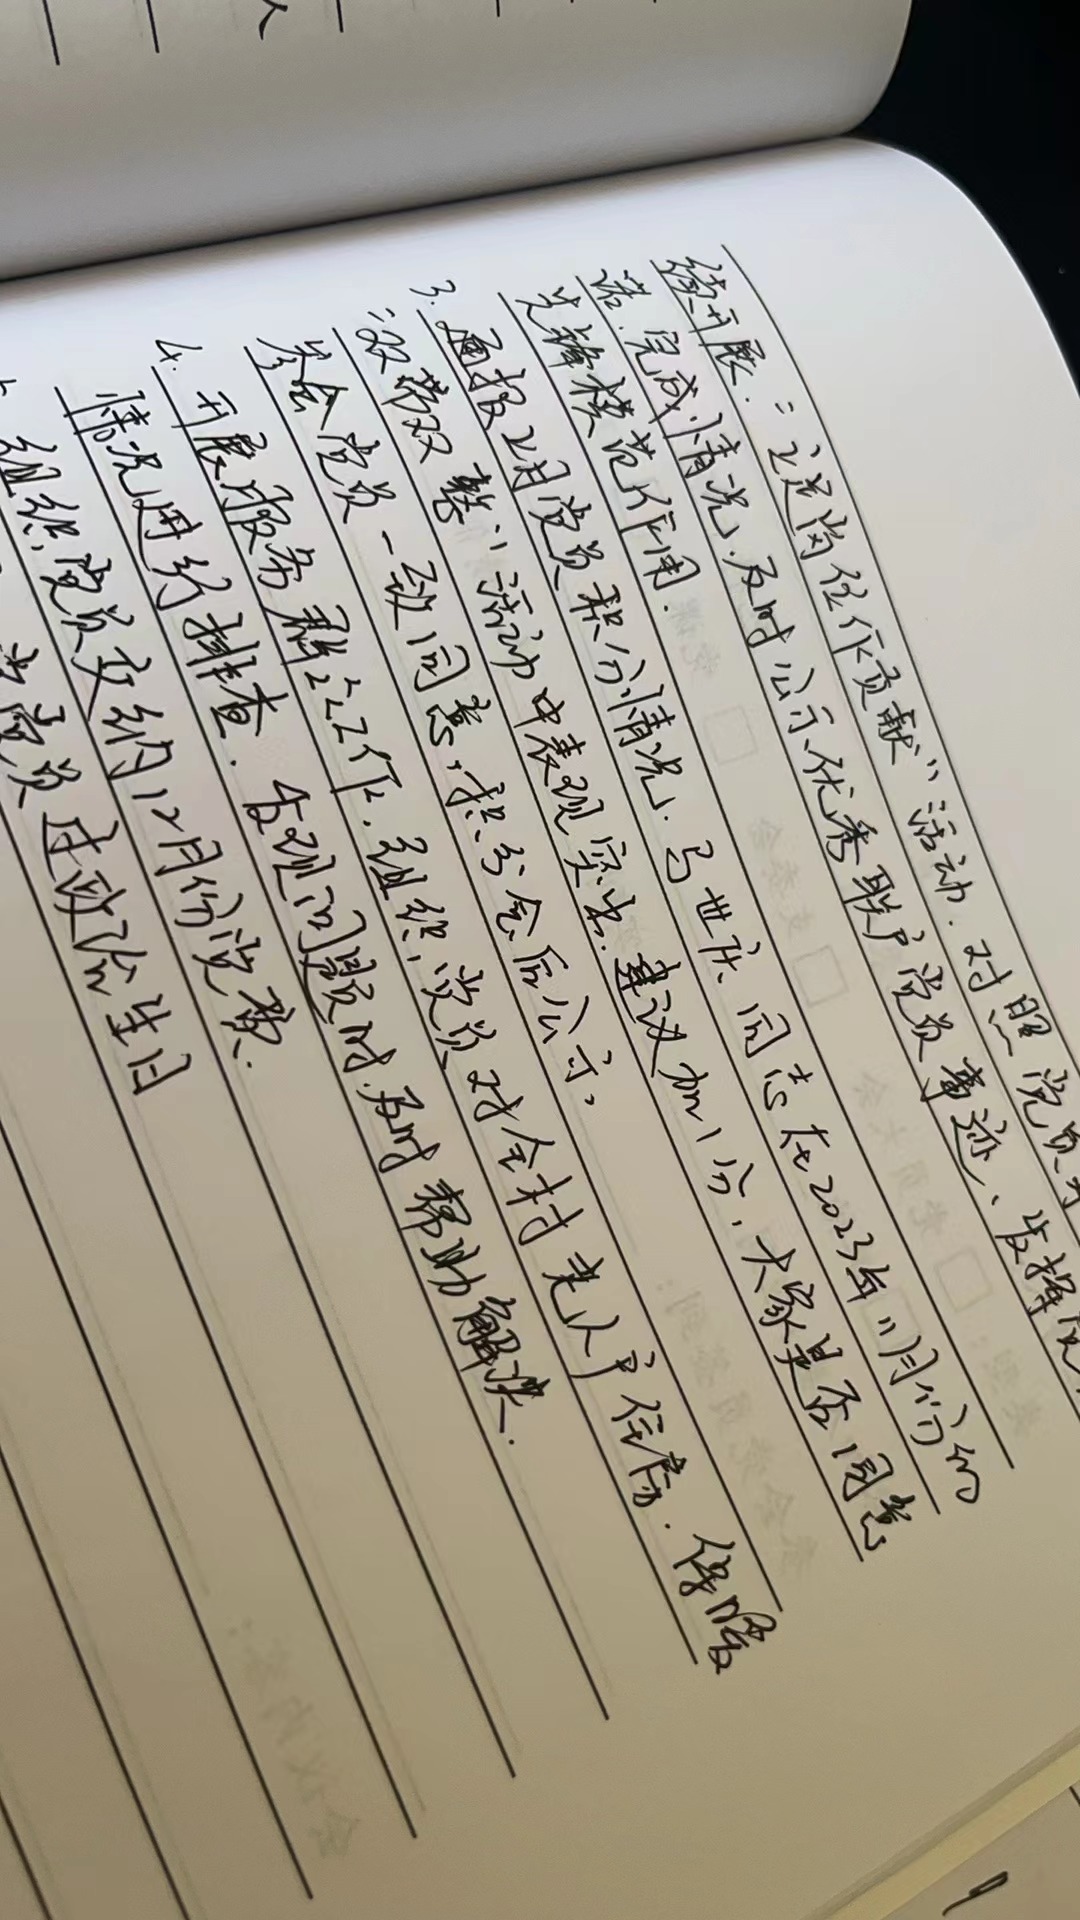 续开展. "立足岗位作贡献"活动. 对照党员承
诺. 完成情况. 及时公示优秀联户党员事迹、发挥党
先锋模范作用.
3. 通报12月党员积分情况. 马世庆同志在2023年11月份的
"双带双整"活动中表现突出. 建议加1分, 大家是否同意
参会党员一致同意, 积分会后公示,
4. 开展服务群众工作. 组织党员对全村老人户住房. 保暖
情况进行排查. 发现问题时. 及时帮助解决.
组织党员交纳12月份党费.
党员过政治生日